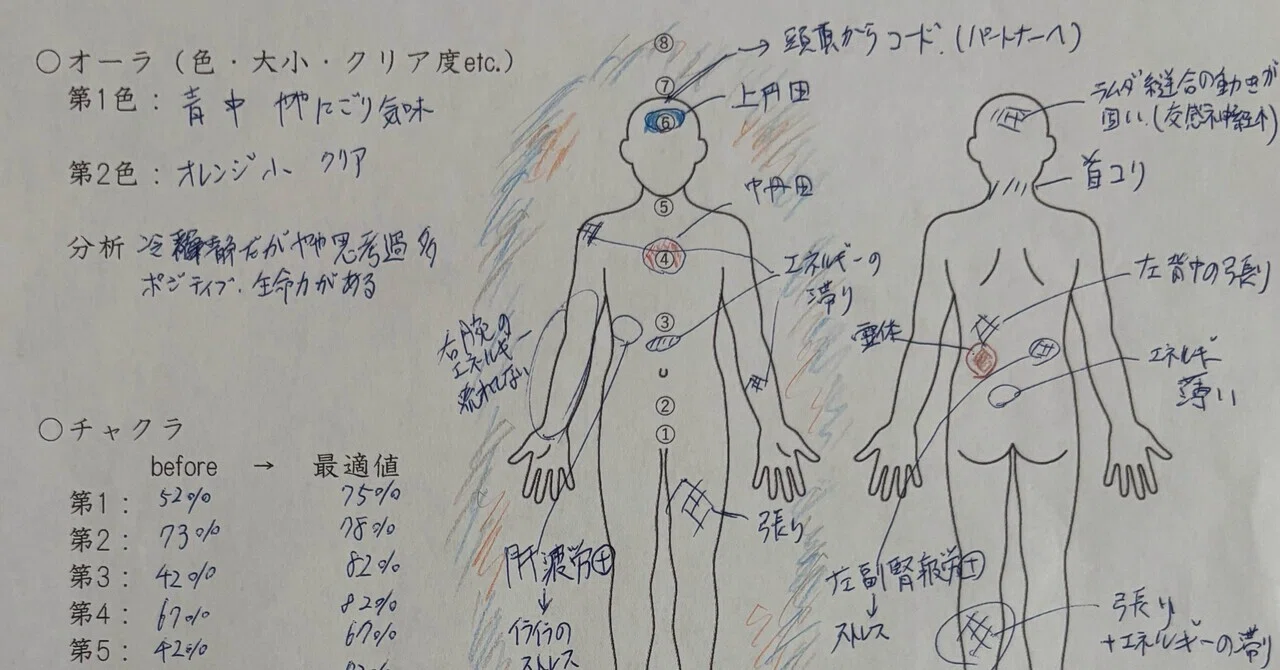 ○オーラ（色・大小・クリア度etc.）
第1色：青 中 ややにごり気味
第2色：オレンジ 小 クリア
分析 冷静だがやや思考過多
ポジティブ、生命力がある
○チャクラ
before → 最適値
第1： 52% 75%
第2： 73% 78%
第3： 42% 82%
第4： 67% 82%
第5： 42% 67%
⑧
⑦
⑥
⑤
④
③
②
①
→ 頭頂からコード.(パートナーへ)
上丹田
中丹田
エネルギーの
滞り
右腕の
エネルギー
流れない
張り
肝疲労⊞
↓
イライラの
ストレス
ラムダ縫合の動きが
固い.(交感神経↑)
首コリ
左背中の張り
霊体
エネルギー
薄い
左副腎疲労⊞
↓
ストレス
張り
+エネルギーの滞り